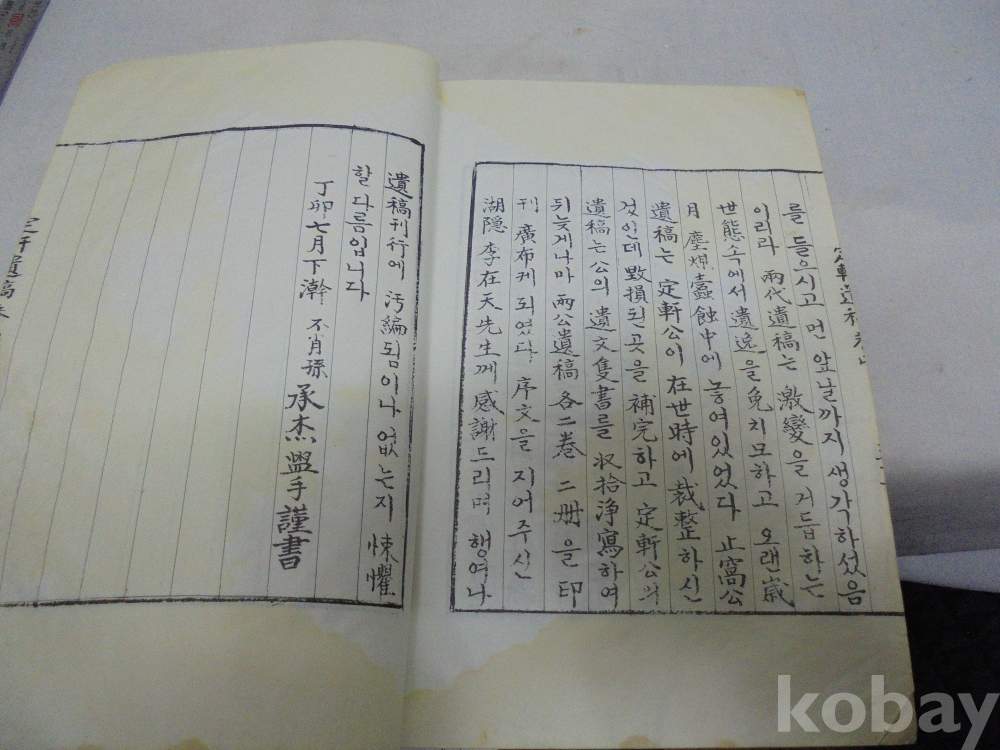 를 들으시고 먼 앞날까지 생각하셨음
이리라 兩代遺稿는 激變을 거듭하는
世態속에서 遺逸을 免치모하고 오랜歲
月 塵煤蠹蝕中에 놓여있었다 止窩公
遺稿는 定軒公이 在世時에 裁整하신
것인데 毁損된곳을 補完하고 定軒公의
遺稿는 公의 遺文隻書를 収拾淨寫하여
뒤늦게나마 兩公遺稿 各二卷 二册을 印
刊 廣布케 되였다 序文을 지어주신
湖隱 李在天先生께 感謝드리며 행여나
遺稿刊行에 汚編됨이나 없는지 悚懼
할 다름입니다
丁卯七月下澣 不肖孫 承杰盥手謹書
kobay